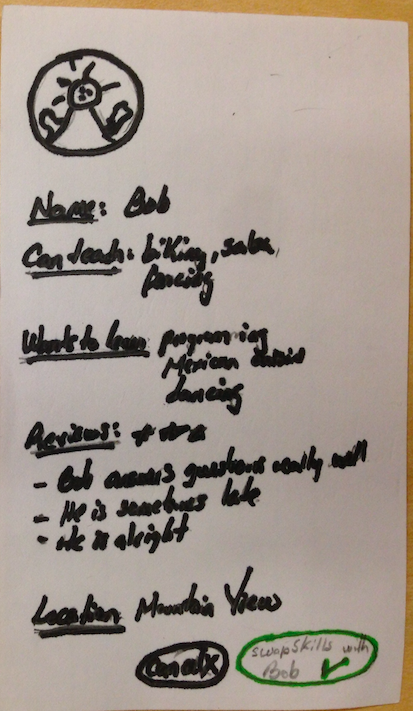 Name: Bob
Can teach: biking, salsa,
fencing
Wants to learn programing
Mexican
dancing
Reviews:
- Bob answers questions really well
- He is sometimes late
- He is alright
Location: Mountain View
cancel X
swap skills with
Bob ✓